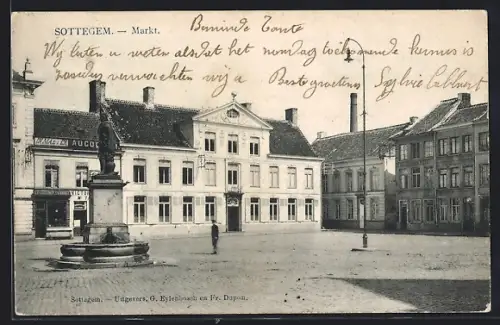 SOTTEGEM. — Markt.
Beminde Tante
Wij laten u weten alsdat het noendag toekomende kermes is
zondag verwachten wij a Best groeten
AUGU
Sottegem. — Uitgevers, G. Eylenbosch en Fr. Dupon.